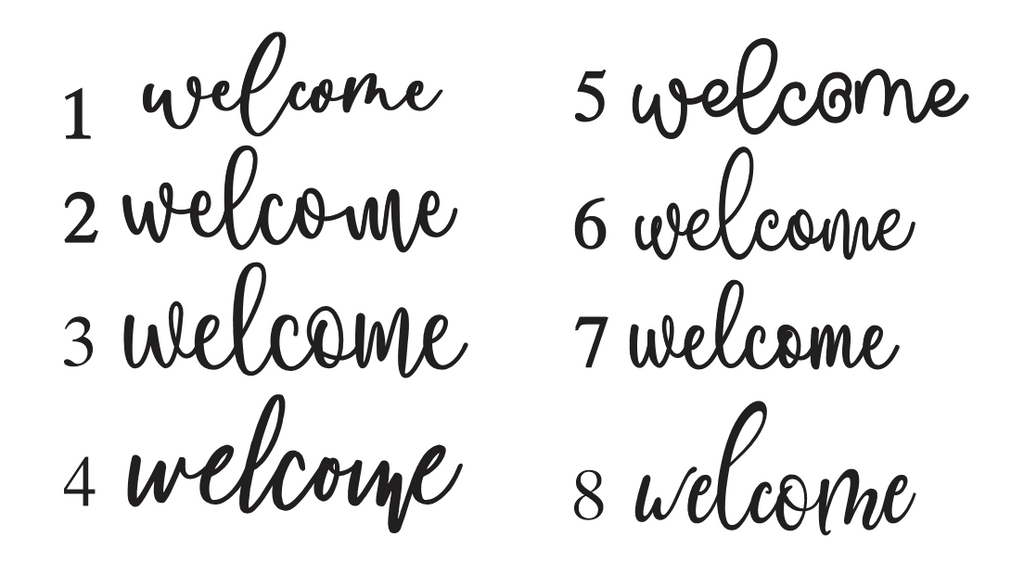 1 welcome
2 welcome
3 welcome
4 welcome
5 welcome
6 welcome
7 welcome
8 welcome